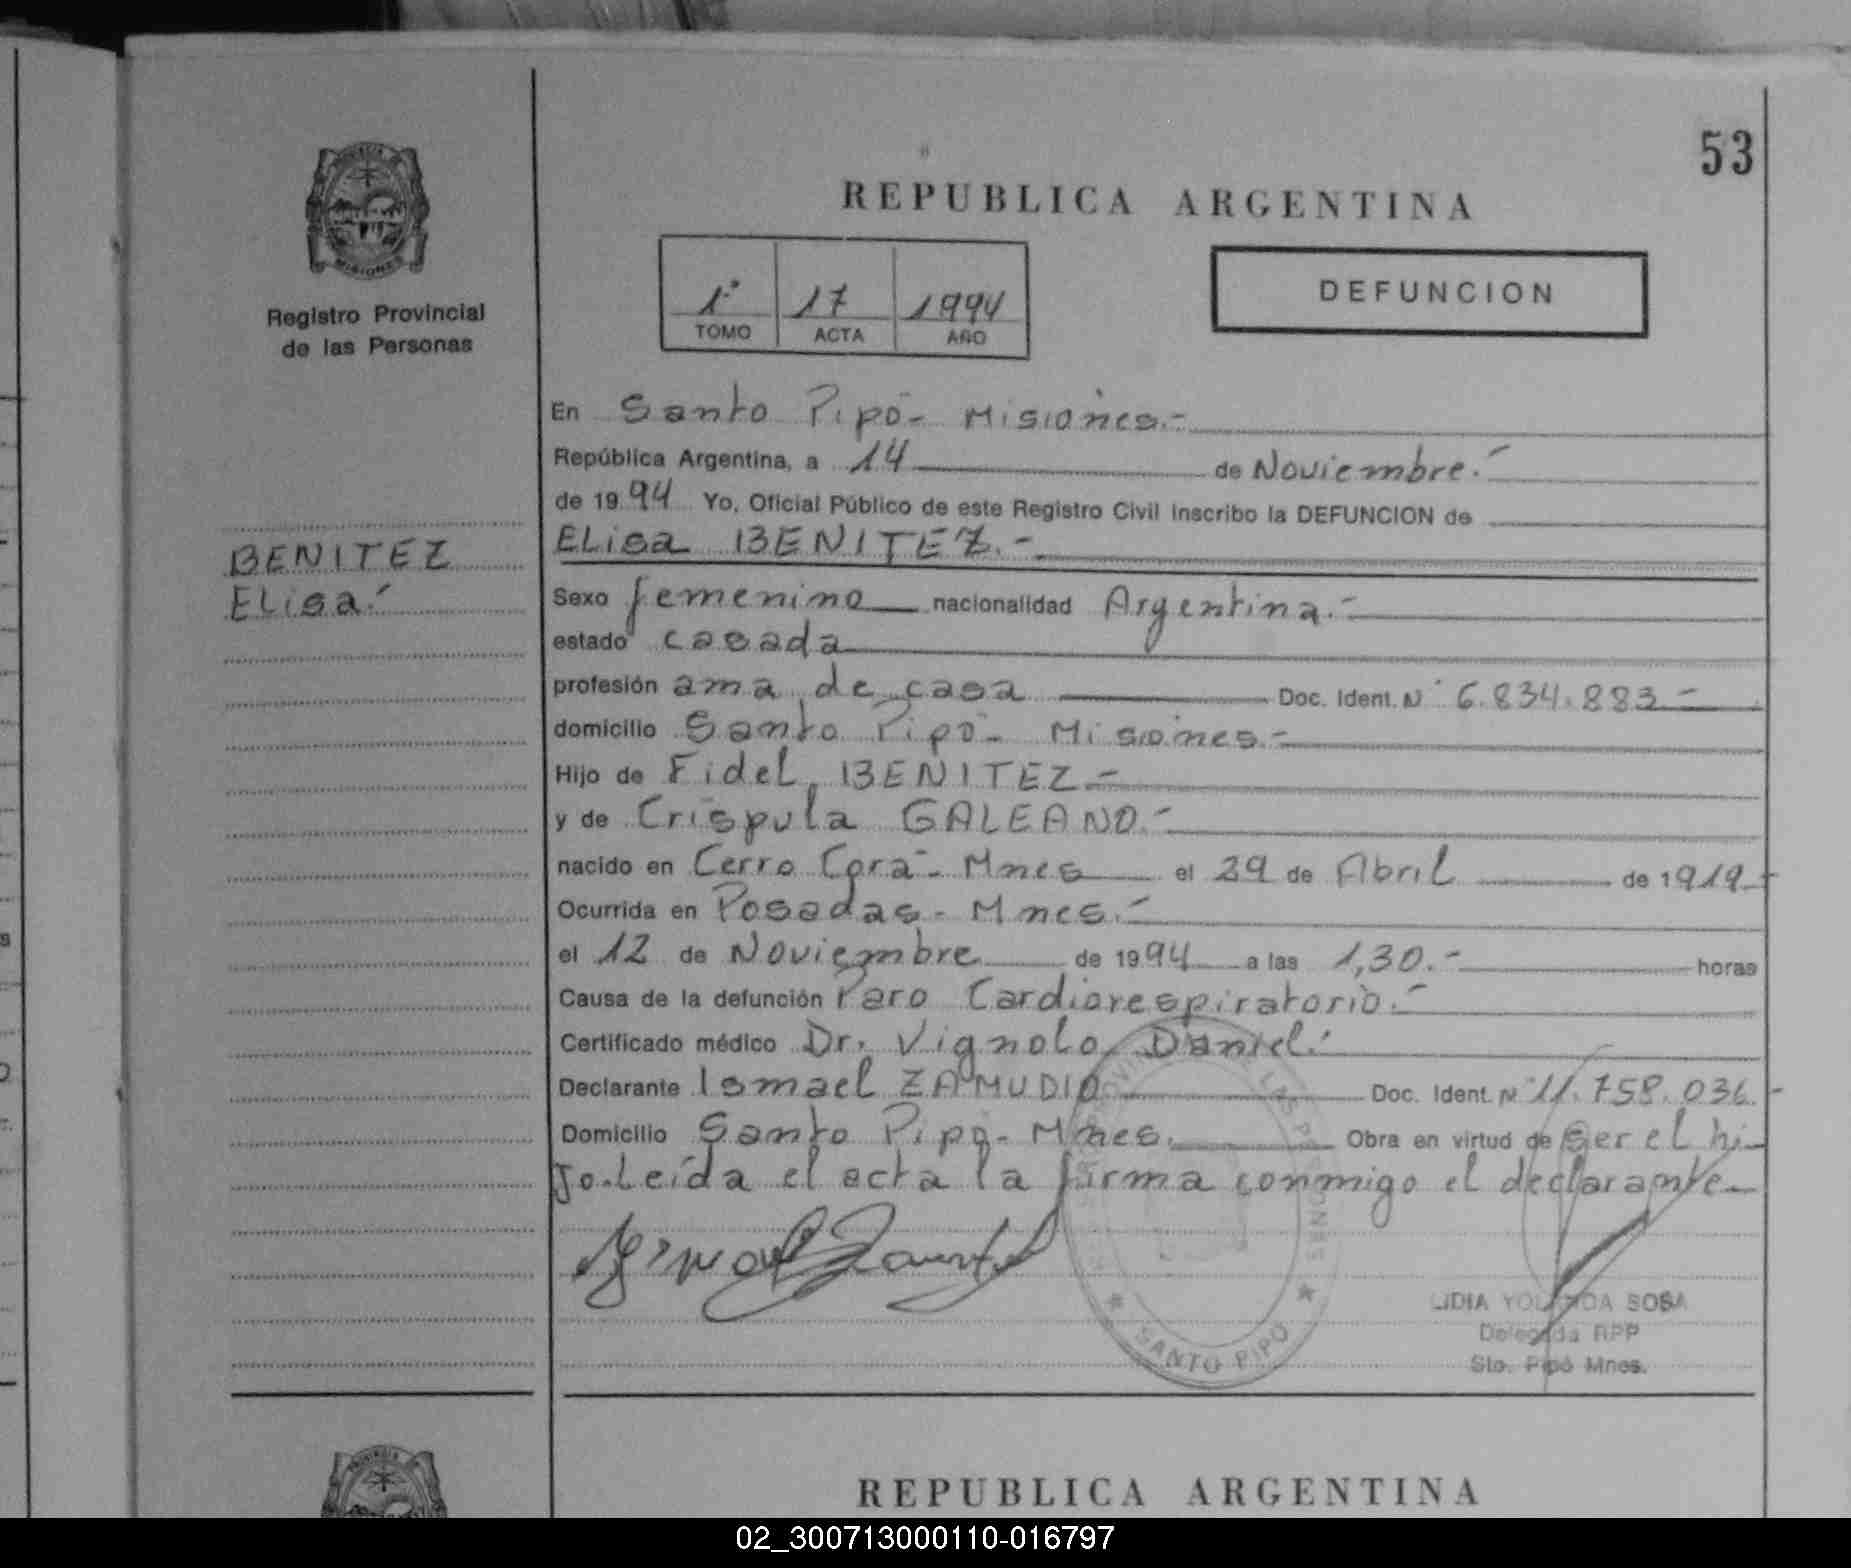 53
PROVINCIA DE
MISIONES
Registro Provincial
de las Personas
REPUBLICA ARGENTINA
1º 17 1994
TOMO ACTA AÑO
DEFUNCION
BENITEZ
Elisa.-
En Santo Pipó- Misiones.-
República Argentina, a 14 de Noviembre.-
de 1994 Yo, Oficial Público de este Registro Civil inscribo la DEFUNCION de
Elisa BENITEZ.-
Sexo femenino nacionalidad Argentina.-
estado casada
profesión ama de casa Doc. Ident. Nº 6.834.883.-
domicilio Santo Pipó- Misiones.-
Hijo de Fidel BENITEZ.-
y de Crispula GALEANO.-
nacido en Cerro Corá- Mnes el 29 de Abril de 1919.-
Ocurrida en Posadas- Mnes.-
el 12 de Noviembre de 1994 a las 1,30.- horas
Causa de la defunción Paro Cardiorespiratorio.-
Certificado médico Dr. Vignolo Daniel.-
Declarante Ismael ZAMUDIO Doc. Ident. Nº 11.758.036.-
Domicilio Santo Pipó- Mnes. Obra en virtud de ser el hi-
jo.Leída el acta la firma conmigo el declarante-
SANTO PIPO
LIDIA YOLANDA SOSA
Delegada RPP
Sto. Pipó Mnes.
PROVINCIA DE
REPUBLICA ARGENTINA
02_300713000110-016797